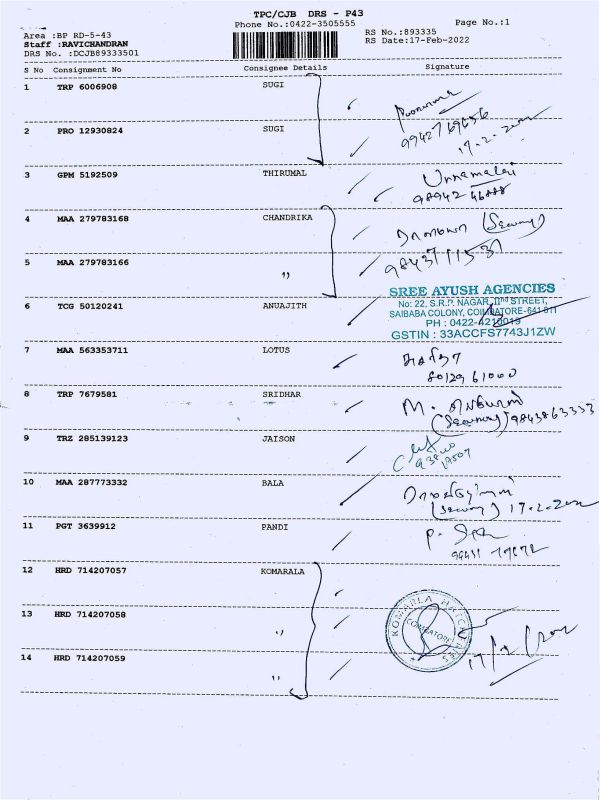 TPC/CJB DRS - P43
Phone No.:0422-3505555
Page No.:1
Area :BP RD-5-43
RS No.:893335
Staff :RAVICHANDRAN
RS Date:17-Feb-2022
DRS No. :DCJB89333501
S No Consignment No Consignee Details Signature
1 TRP 6006908 SUGI
9942769656
17-2-2022
2 PRO 12930824 SUGI
3 GPM 5192509 THIRUMAL Unnamalai
98942 46888
4 MAA 279783168 CHANDRIKA
5 MAA 279783166 ,,
SREE AYUSH AGENCIES
No: 22, S.R.P. NAGAR, IInd STREET,
SAIBABA COLONY, COIMBATORE-641 011
PH : 0422-4210019
GSTIN : 33ACCFS7743J1ZW
6 TCG 50120241 ANUAJITH
7 MAA 563353711 LOTUS
8012961000
8 TRP 7679581 SRIDHAR M.
(Security) 9843863333
9 TRZ 285139123 JAISON
10 MAA 287773332 BALA
(Security) 17-2-2022
11 PGT 3639912 PANDI P.
12 HRD 714207057 KOMARALA
13 HRD 714207058 ,,
KOMARLA HATCHERIES
COIMBATORE
17/2/2022
14 HRD 714207059 ,,